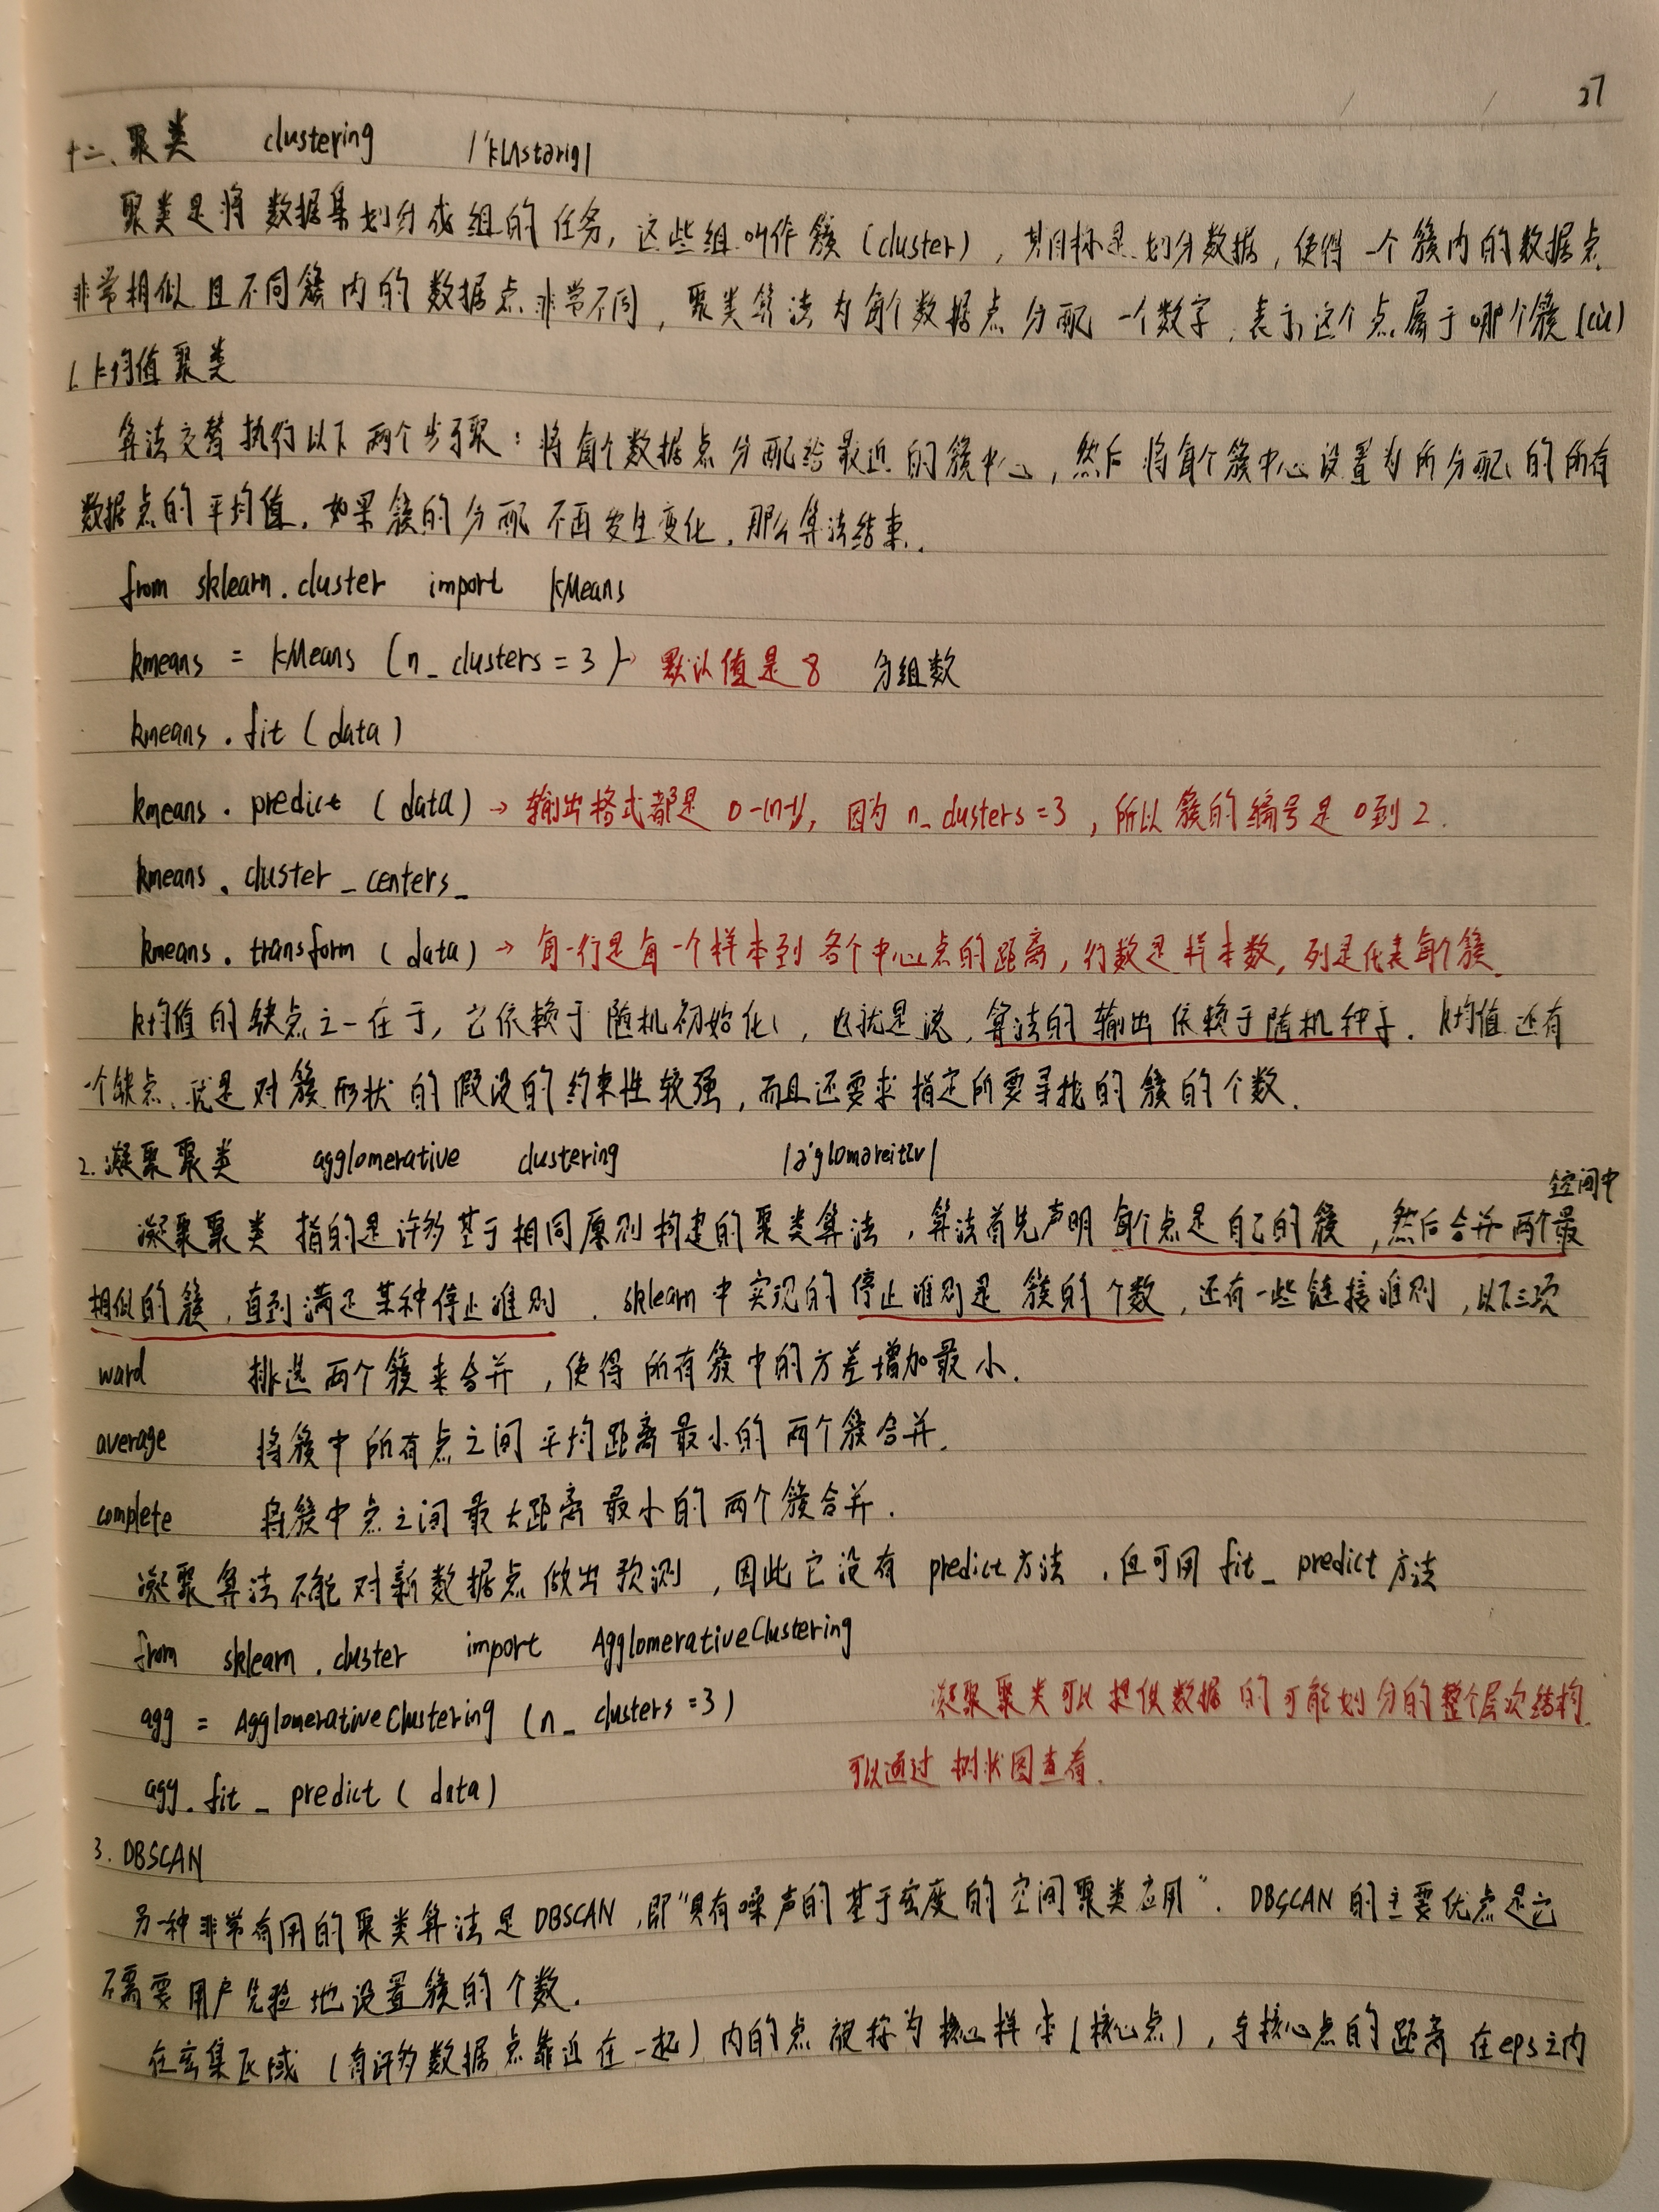 27
十二、聚类 clustering /'klʌstərɪŋ/
聚类是将数据集划分成组的任务，这些组叫作簇(cluster)，其目标是划分数据，使得一个簇内的数据点
非常相似且不同簇内的数据点非常不同，聚类算法为每个数据点分配一个数字，表示这个点属于哪个簇(cù)
1. k均值聚类
算法交替执行以下两个步骤：将每个数据点分配给最近的簇中心，然后将每个簇中心设置为所分配的所有
数据点的平均值。如果簇的分配不再发生变化，那么算法结束。
from sklearn.cluster import KMeans
kmeans = KMeans (n_clusters=3) → 默认值是8 分组数
kmeans.fit(data)
kmeans.predict(data) → 输出格式都是 0-(n-1), 因为 n_clusters=3，所以簇的编号是0到2.
kmeans.cluster_centers_
kmeans.transform(data) → 每一行是每一个样本到各个中心点的距离，行数是样本数，列是代表每个簇.
k均值的缺点之一在于，它依赖于随机初始化，也就是说，算法的输出依赖于随机种子。k均值还有
一个缺点，就是对簇形状的假设的约束性较强，而且还要求指定所要寻找的簇的个数.
2. 凝聚聚类 agglomerative clustering /ə'glɒməreitɪv/
空间中
凝聚聚类指的是许多基于相同原则构建的聚类算法，算法首先声明每个点是自己的簇，然后合并两个最
相似的簇，直到满足某种停止准则．sklearn中实现的停止准则是簇的个数，还有一些链接准则，以下三项
ward 挑选两个簇来合并，使得所有簇中的方差增加最小.
average 将簇中所有点之间平均距离最小的两个簇合并.
complete 将簇中点之间最大距离最小的两个簇合并.
凝聚算法不能对新数据点做出预测，因此它没有predict方法，但可用fit_predict方法
from sklearn.cluster import AgglomerativeClustering
agg = AgglomerativeClustering (n_clusters=3) 凝聚聚类可以提供数据的可能划分的整个层次结构.
可以通过树状图查看.
agg.fit_predict(data)
3. DBSCAN
另一种非常有用的聚类算法是DBSCAN，即“具有噪声的基于密度的空间聚类应用”．DBSCAN的主要优点是它
不需要用户先验地设置簇的个数.
在密集区域(有许多数据点靠近在一起)内的点被称为核心样本(核心点)，与核心点的距离在eps之内